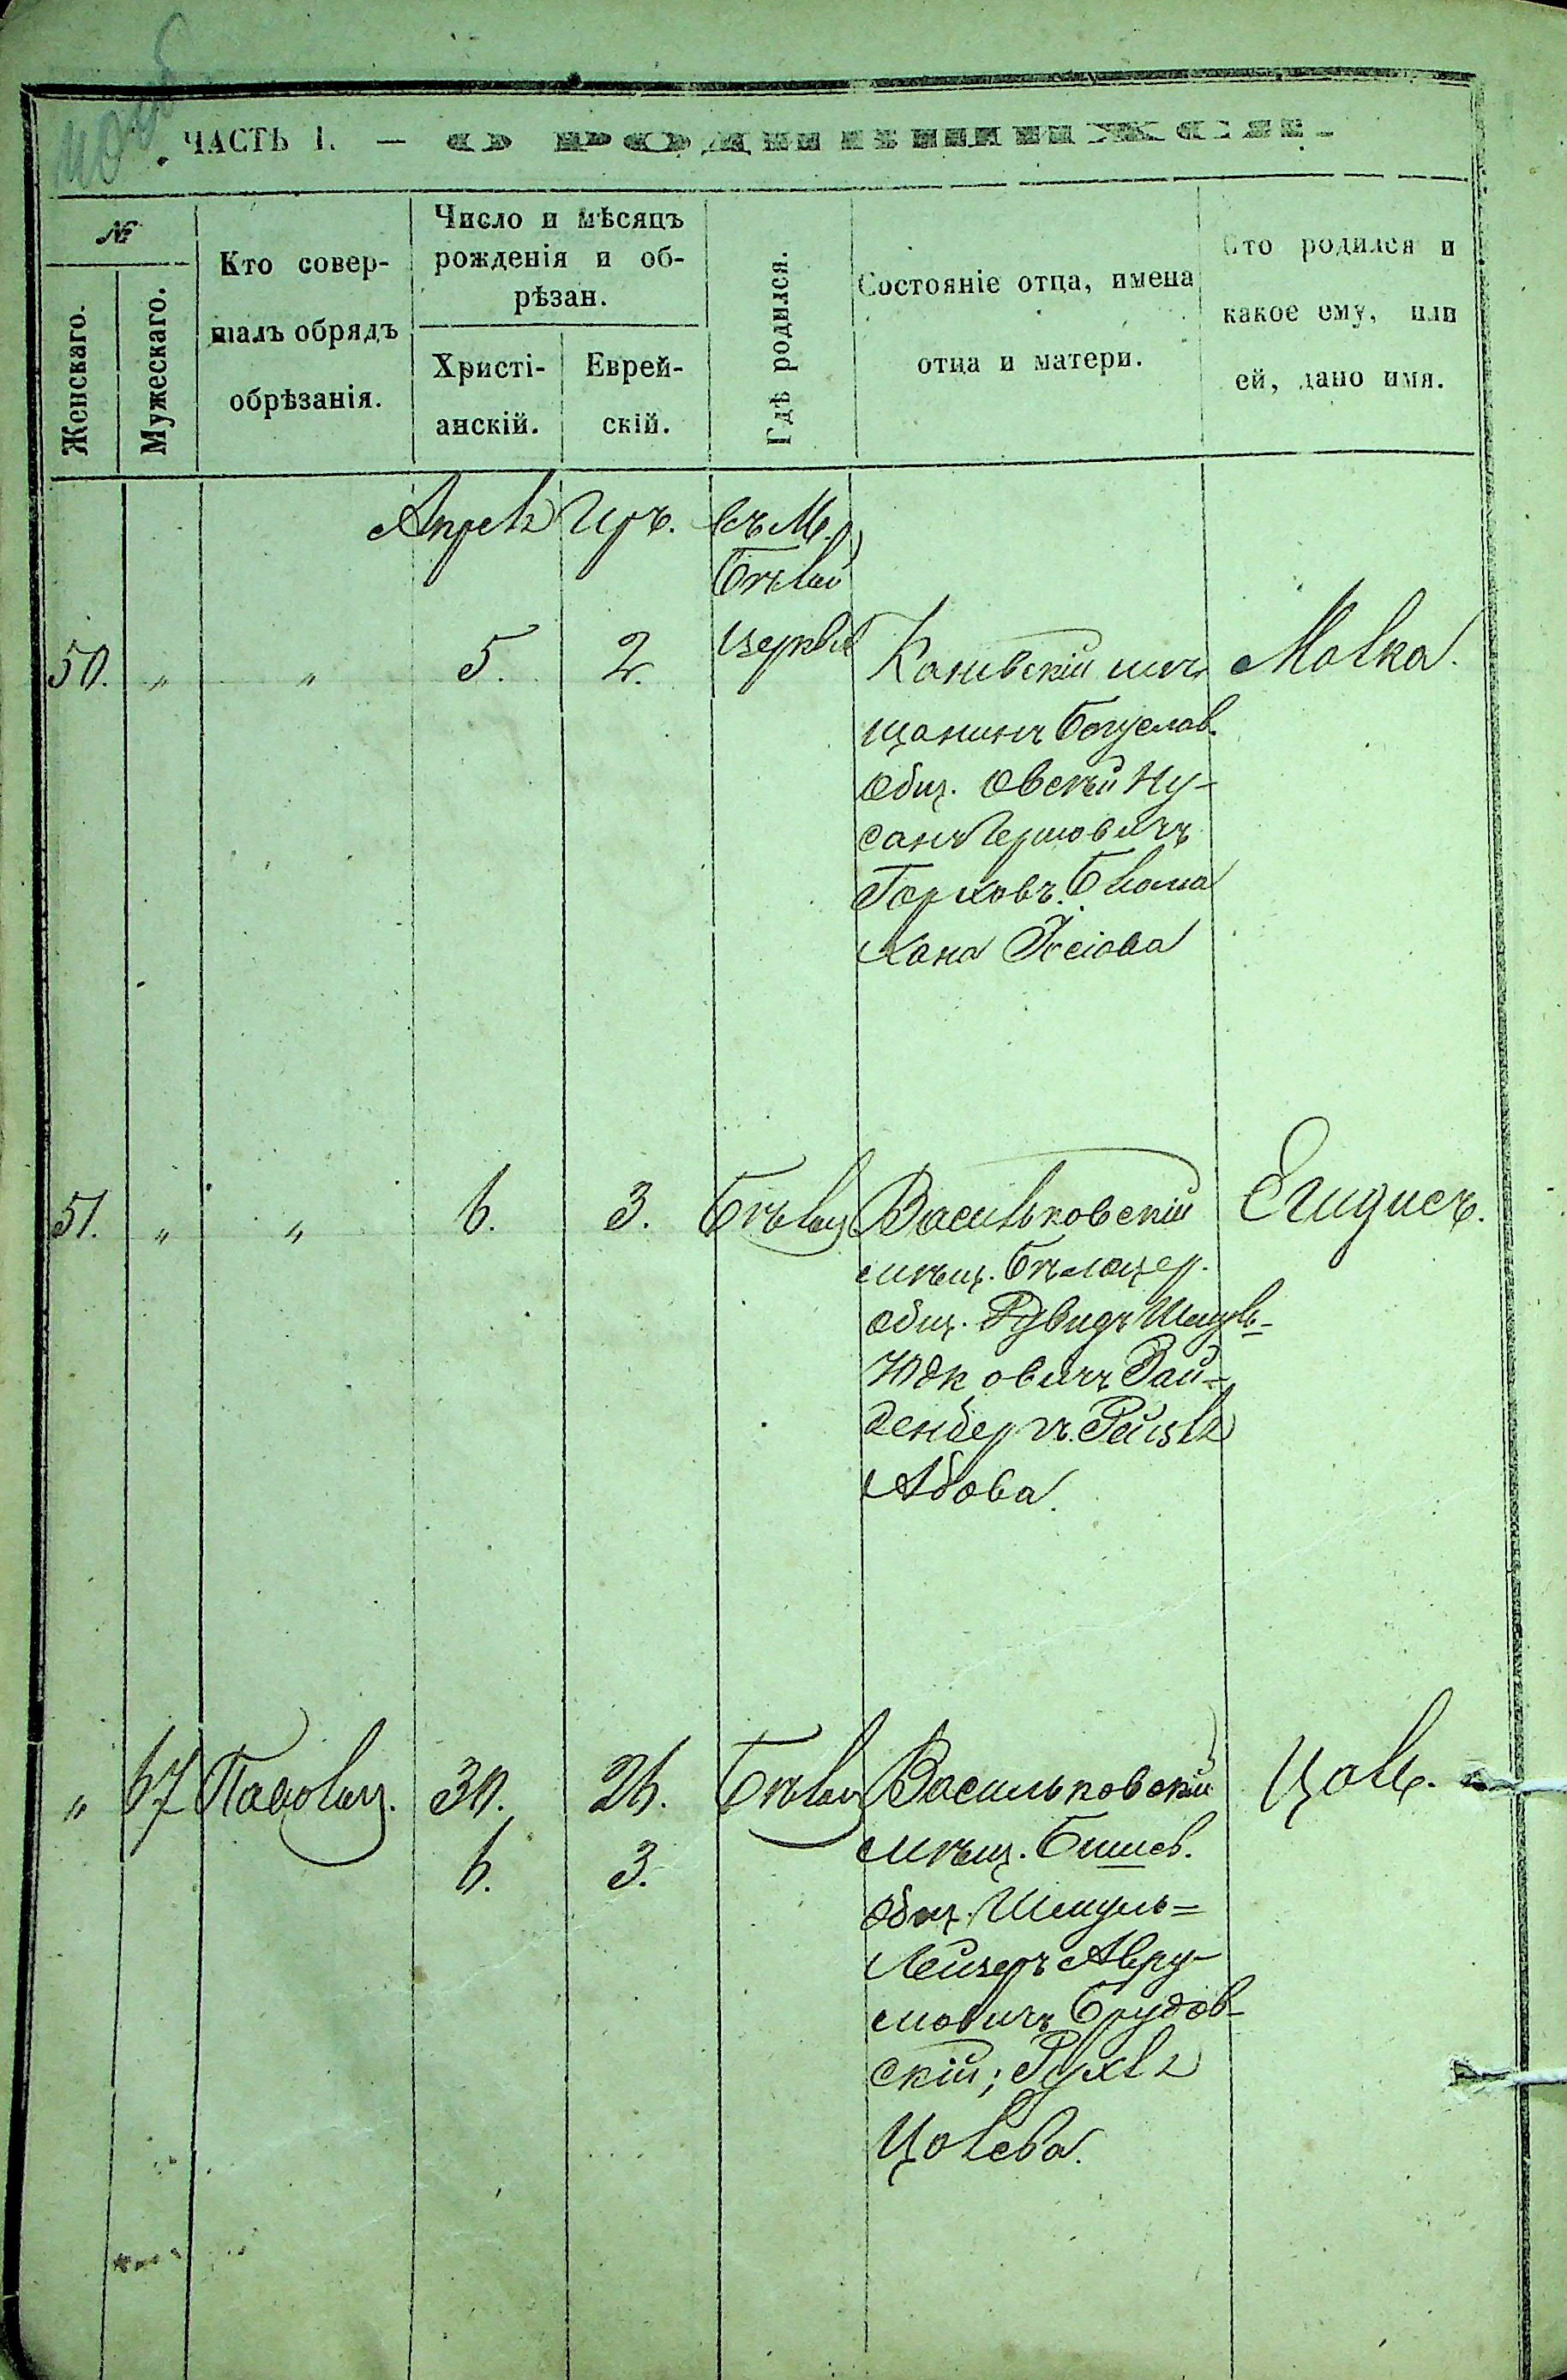 ЧАСТЬ I. — О РОДИВШИХСЯ.
№
Женскаго.
Мужескаго.
Кто совер-
шалъ обрядъ
обрѣзанія.
Число и мѣсяцъ
рожденія и об-
рѣзан.
Христі-
анскій.
Еврей-
скій.
Гдѣ родился.
Состояніе отца, имена
отца и матери.
Кто родился и
какое ему, или
ей, дано имя.
Апрель Иръ. въ М.
Бѣлой
церкви
50. " " 5. 2. Каневскій мѣ-
щанинъ Богуслав.
общ. Овсѣй Ну-
санъ Гершовичъ
Горховъ.
Хана Іосіова
Малка.
51. " " 6. 3. Бѣлац Васильковскій
мѣщ. Бѣлоцер.
общ. Дувидъ Шмуль-
Юдковичъ Зай-
денбергъ. Рейзля
Абова.
Егидисъ.
" 67 Паволоц. 30. 26. Бѣлац Васильковскій
6. 3. мѣщ. Бышев.
общ. Шмуль=
Лейзеръ Авру-
мовичъ Брудов-
скій; Рухля
Цалева.
Цаль.